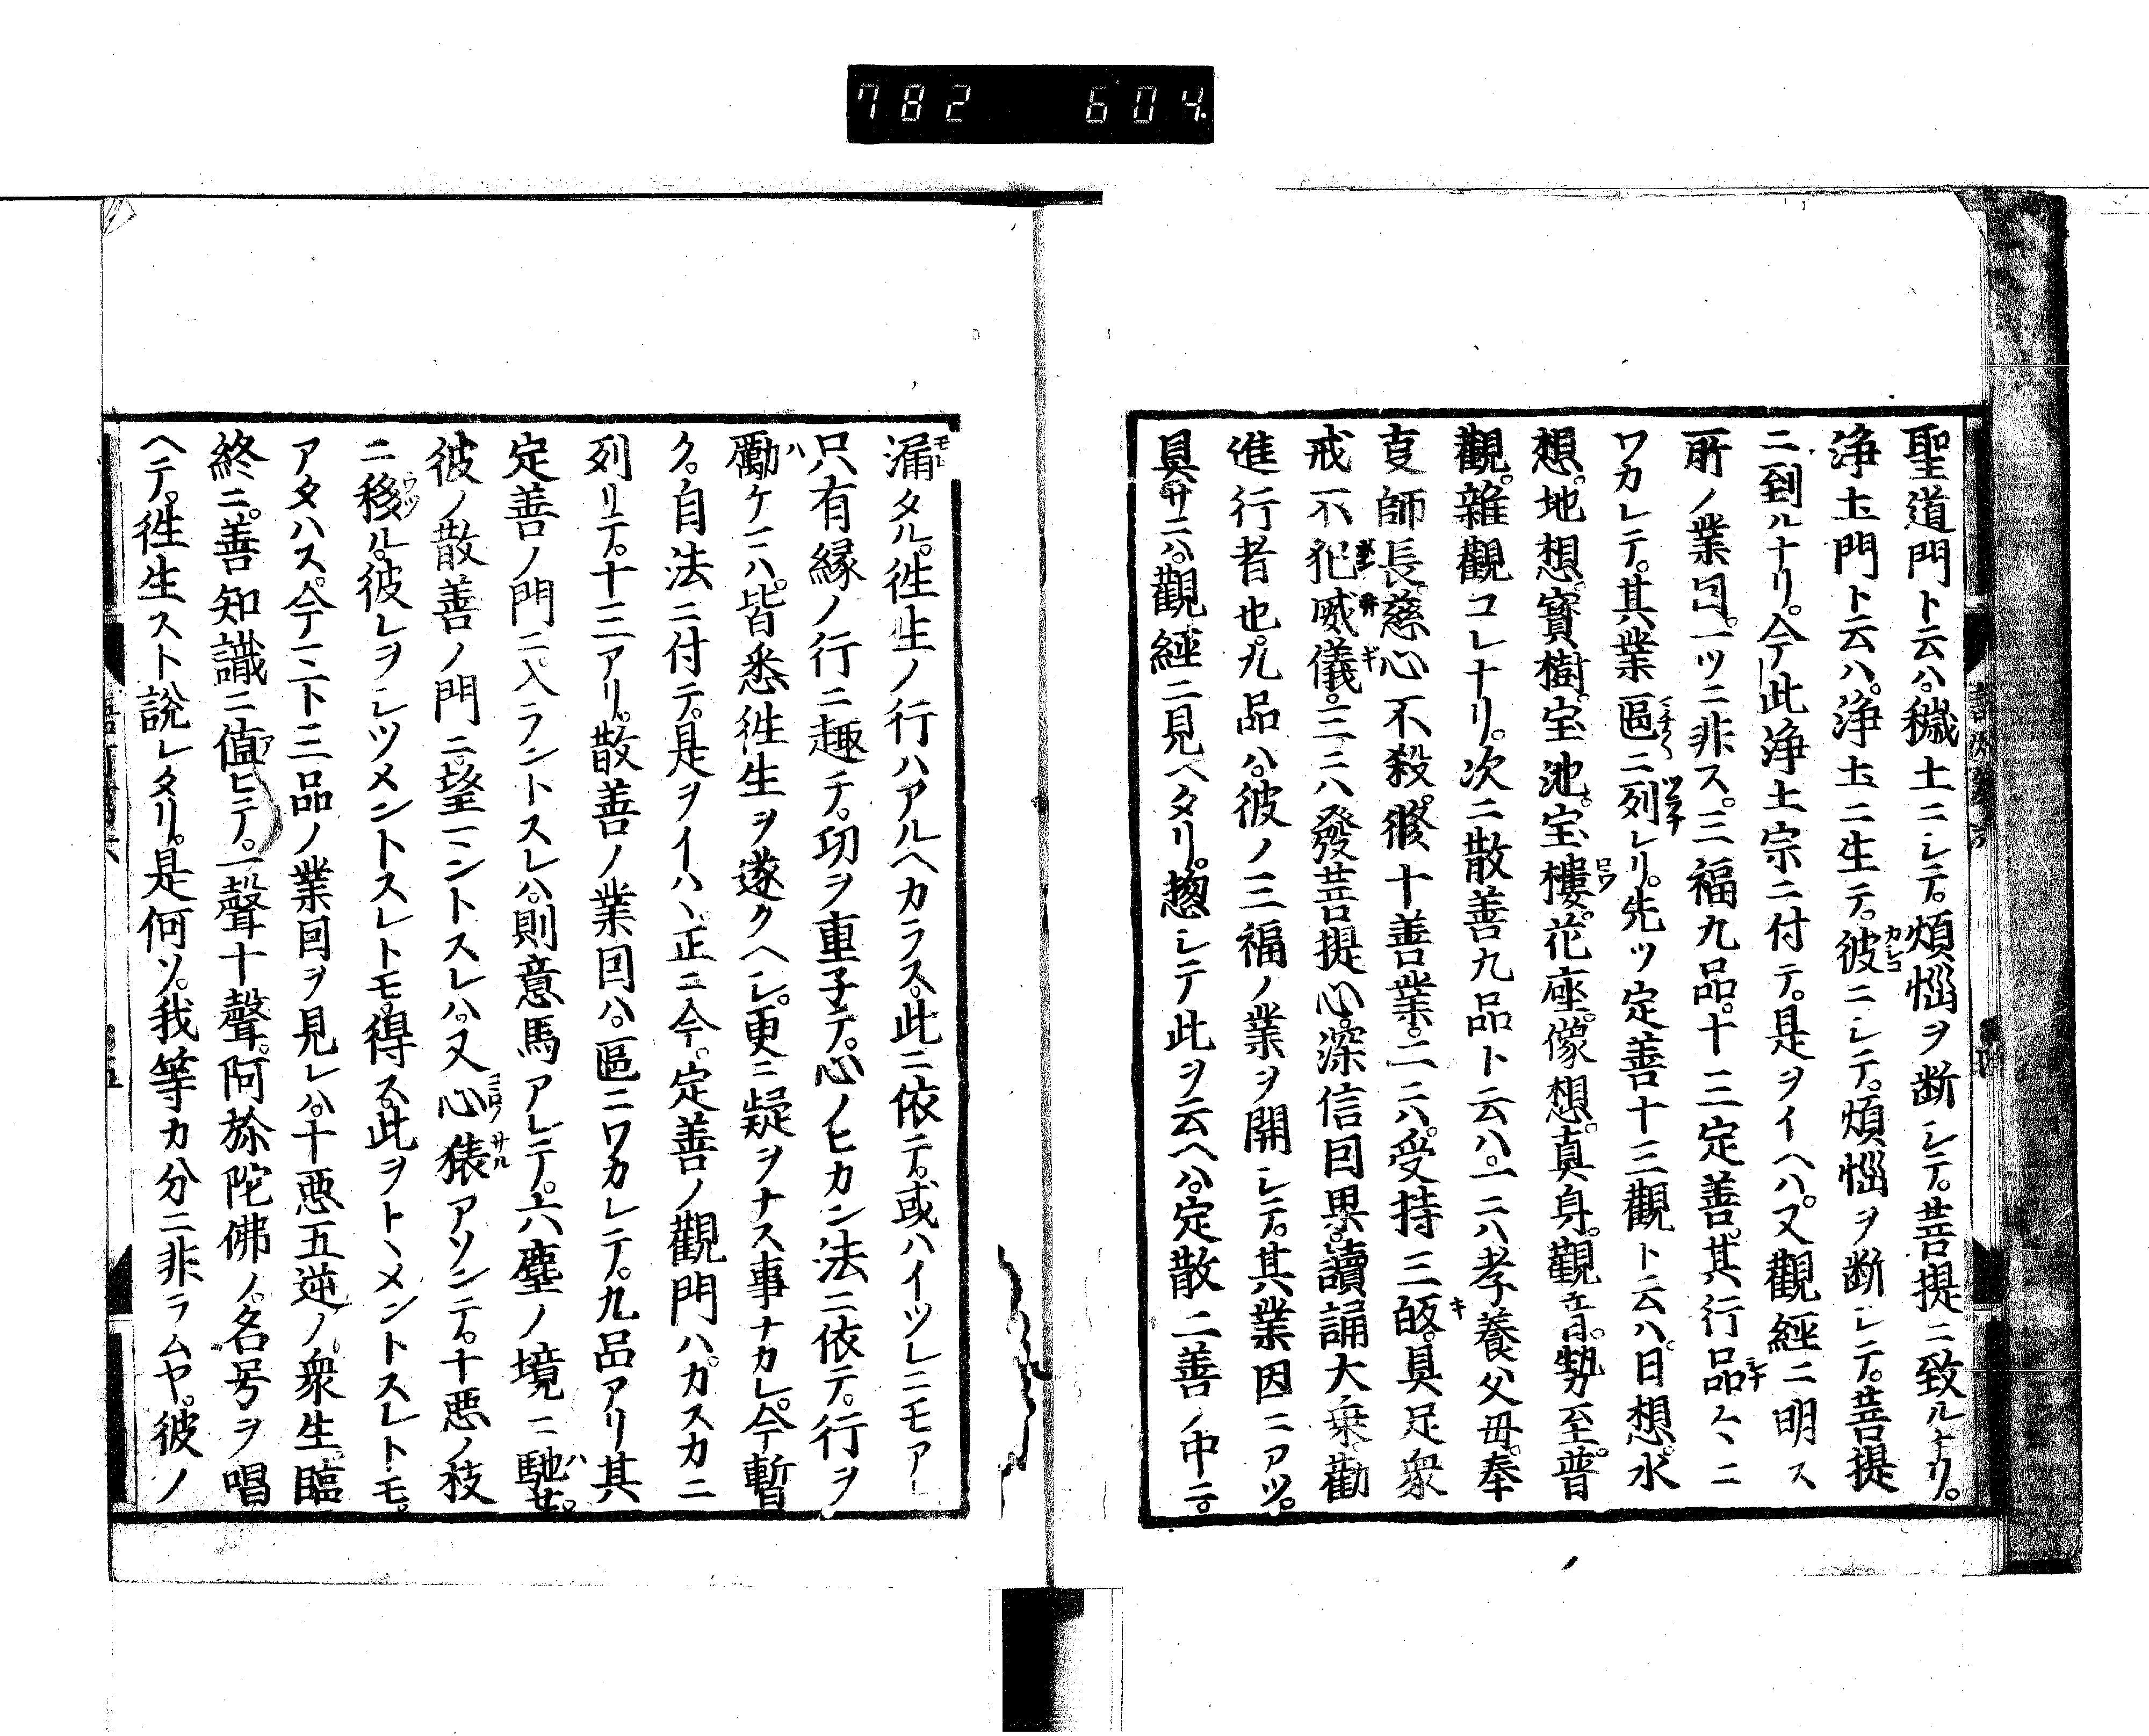 782 604
聖道門ト云ハ。穢土ニシテ。煩惱ヲ断シテ。菩提ニ致ルナリ。
浄土門ト云ハ。浄土ニ生テ。彼ニシテ。煩惱ヲ断シテ。菩提
ニ到ルナリ。今此浄土宗ニ付テ。是ヲイヘハ。又觀經ニ明ス
所ノ業因。一ツニ非ス。三福九品。十三定善。其行品々ニ
ワカレテ。其業區ニ列レリ。先ツ定善十三觀ト云ハ。日想。水
想。地想。寳樹。宝池。宝樓。花座。像想。真身。觀音。勢至。普
觀。雜觀コレナリ。次ニ散善九品ト云ハ。一ニハ孝養父母。奉
事師長。慈心不殺。修十善業。二ニハ。受持三皈。具足衆
戒不犯威儀。三ニハ發菩提心。深信因果。讀誦大乗。勸
進行者也。九品ハ。彼ノ三福ノ業ヲ開シテ。其業因ニアツ。
具サニハ。觀經ニ見ヘタリ。惣シテ此ヲ云ヘハ。定散二善ノ中ニ。
漏タル。徃生ノ行ハアルヘカラス。此ニ依テ。或ハイツレニモアレ
只有縁ノ行ニ趣テ。功ヲ重子テ。心ノヒカン法ニ依テ。行ヲ
勵ケマハ。皆悉徃生ヲ遂クヘシ。更ニ疑ヲナス事ナカレ。今暫
ク。自法ニ付テ。是ヲイハヽ。正ニ今。定善ノ觀門ハ。カスカニ
列リテ。十三アリ。散善ノ業因ハ。區ニワカレテ。九品アリ其
定善ノ門ニ入ラントスレハ。則意馬アレテ。六塵ノ境ニ馳ス。
彼ノ散善ノ門ニ。望マントスレハ。又心猿アソンテ。十悪ノ枝
ニ移ル。彼レヲシツメントスレトモ得ス。此ヲトヽメントスレトモ。
アタハス。今下三品ノ業因ヲ見レハ。十悪五逆ノ衆生。臨
終ニ。善知識ニ値ヒテ。一聲十聲。阿弥陀佛ノ。名号ヲ唱
ヘテ。徃生スト説レタリ。是何ソ。我等カ分ニ非ラムヤ。彼ノ